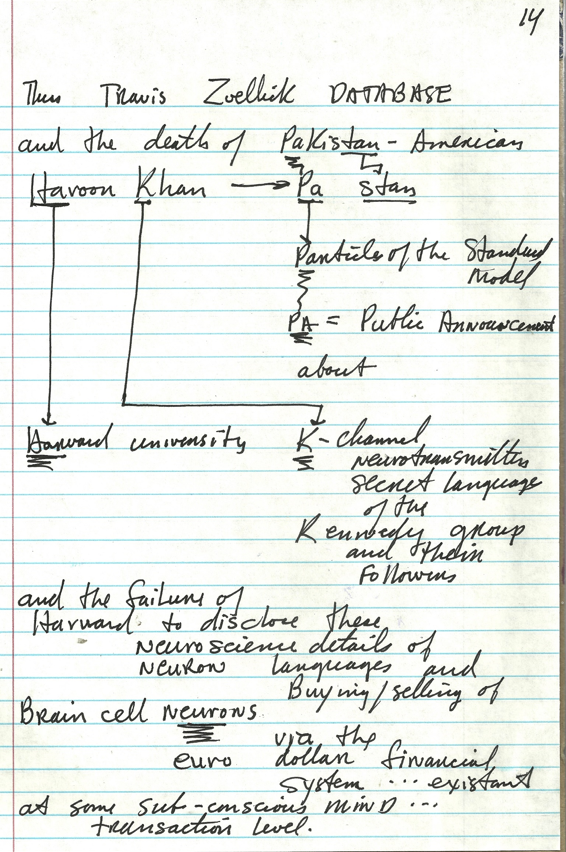 14
Thus Travis Zoellick DATABASE
and the death of Pakistan - American
Haroon Khan → Pa stan
Particles of the Standard
Model
PA = Public Announcement
about
Harvard university K-channel
neurotransmitter
secret language
of the
Kennedy group
and their
followers
and the failure of
Harvard to disclose these
neuroscience details of
neuron languages and
Buying/selling of
Brain cell neurons
via the
euro dollar financial
system ... existant
at some sub-conscious mind ...
transaction level.